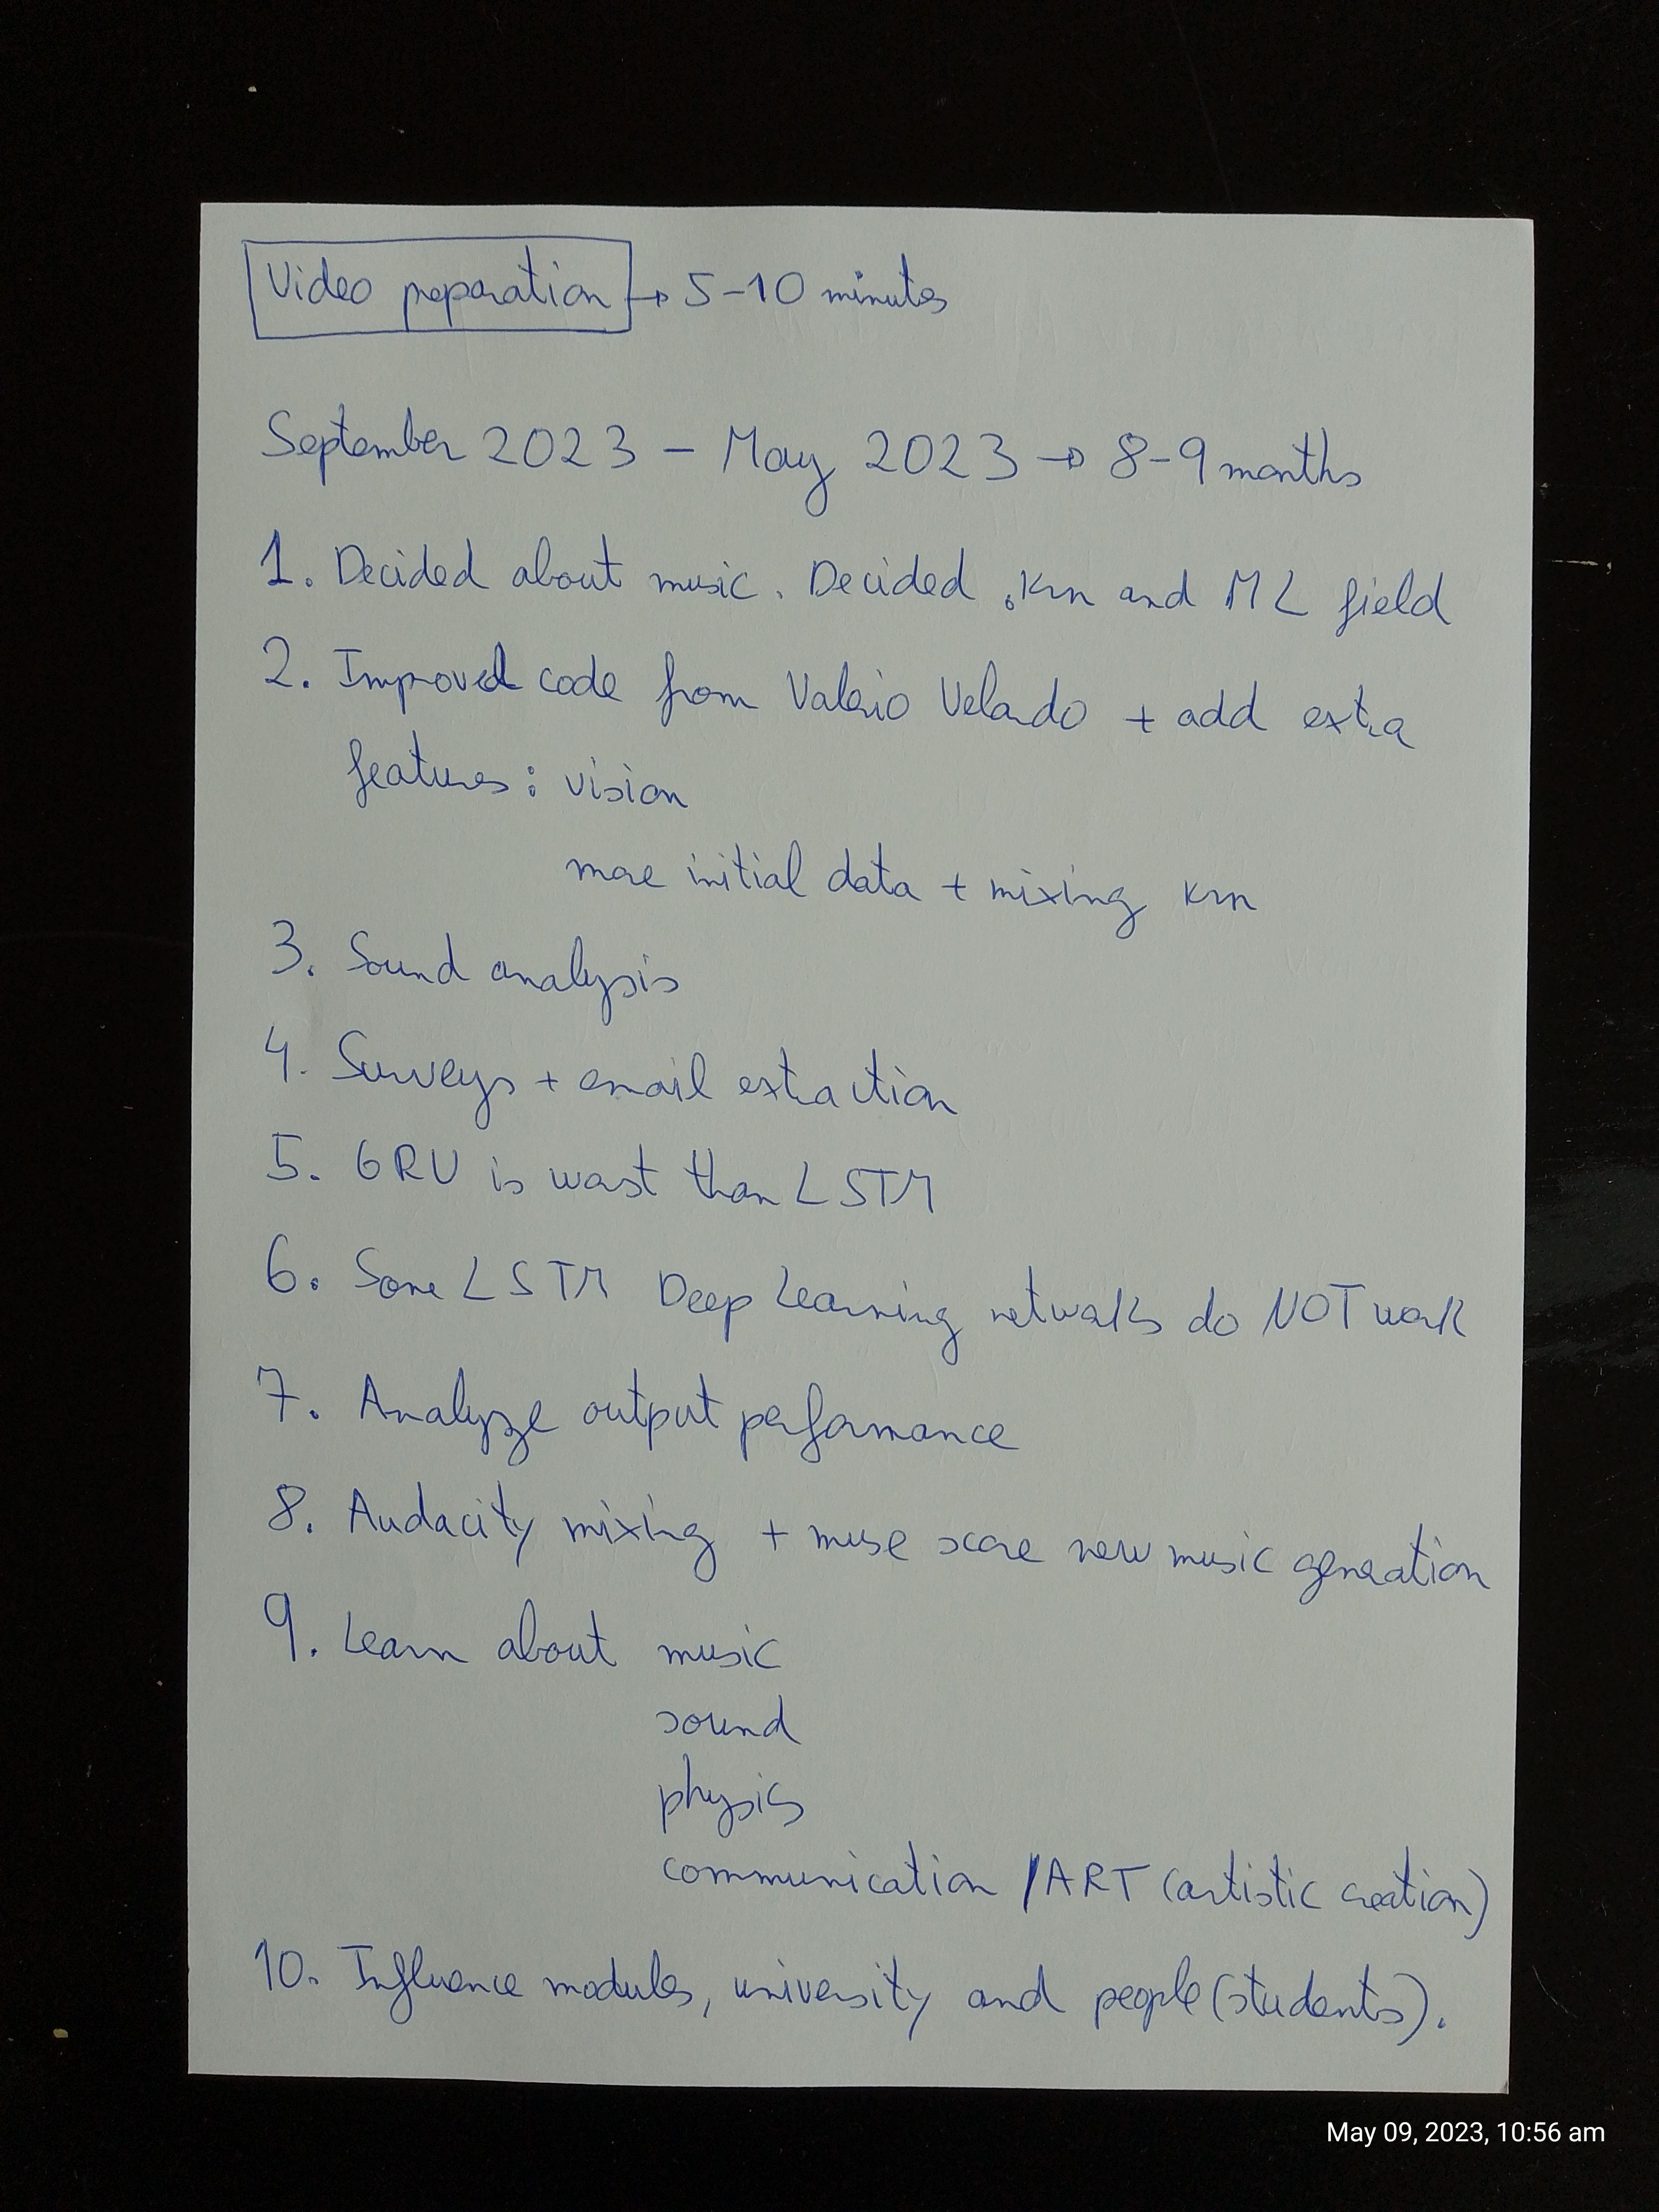 Video preparation → 5-10 minutes
September 2023 - May 2023 → 8-9 months
1. Decided about music. Decided .krn and ML field
2. Improved code from Valerio Velardo + add extra
features: vision
more initial data + mixing krn
3. Sound analysis
4. Surveys + email extraction
5. GRU is worst than LSTM
6. Some LSTM Deep Learning networks do NOT work
7. Analyze output performance
8. Audacity mixing + muse score new music generation
9. Learn about music
sound
physics
communication / ART (artistic creation)
10. Influence modules, university and people (students).
May 09, 2023, 10:56 am